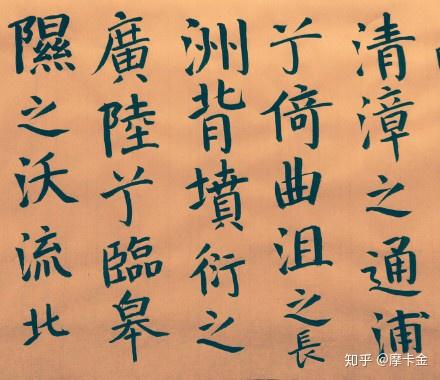 清漳之通浦
兮倚曲沮之長
洲背墳衍之
廣陸兮臨皋
隰之沃流北
知乎 @摩卡金